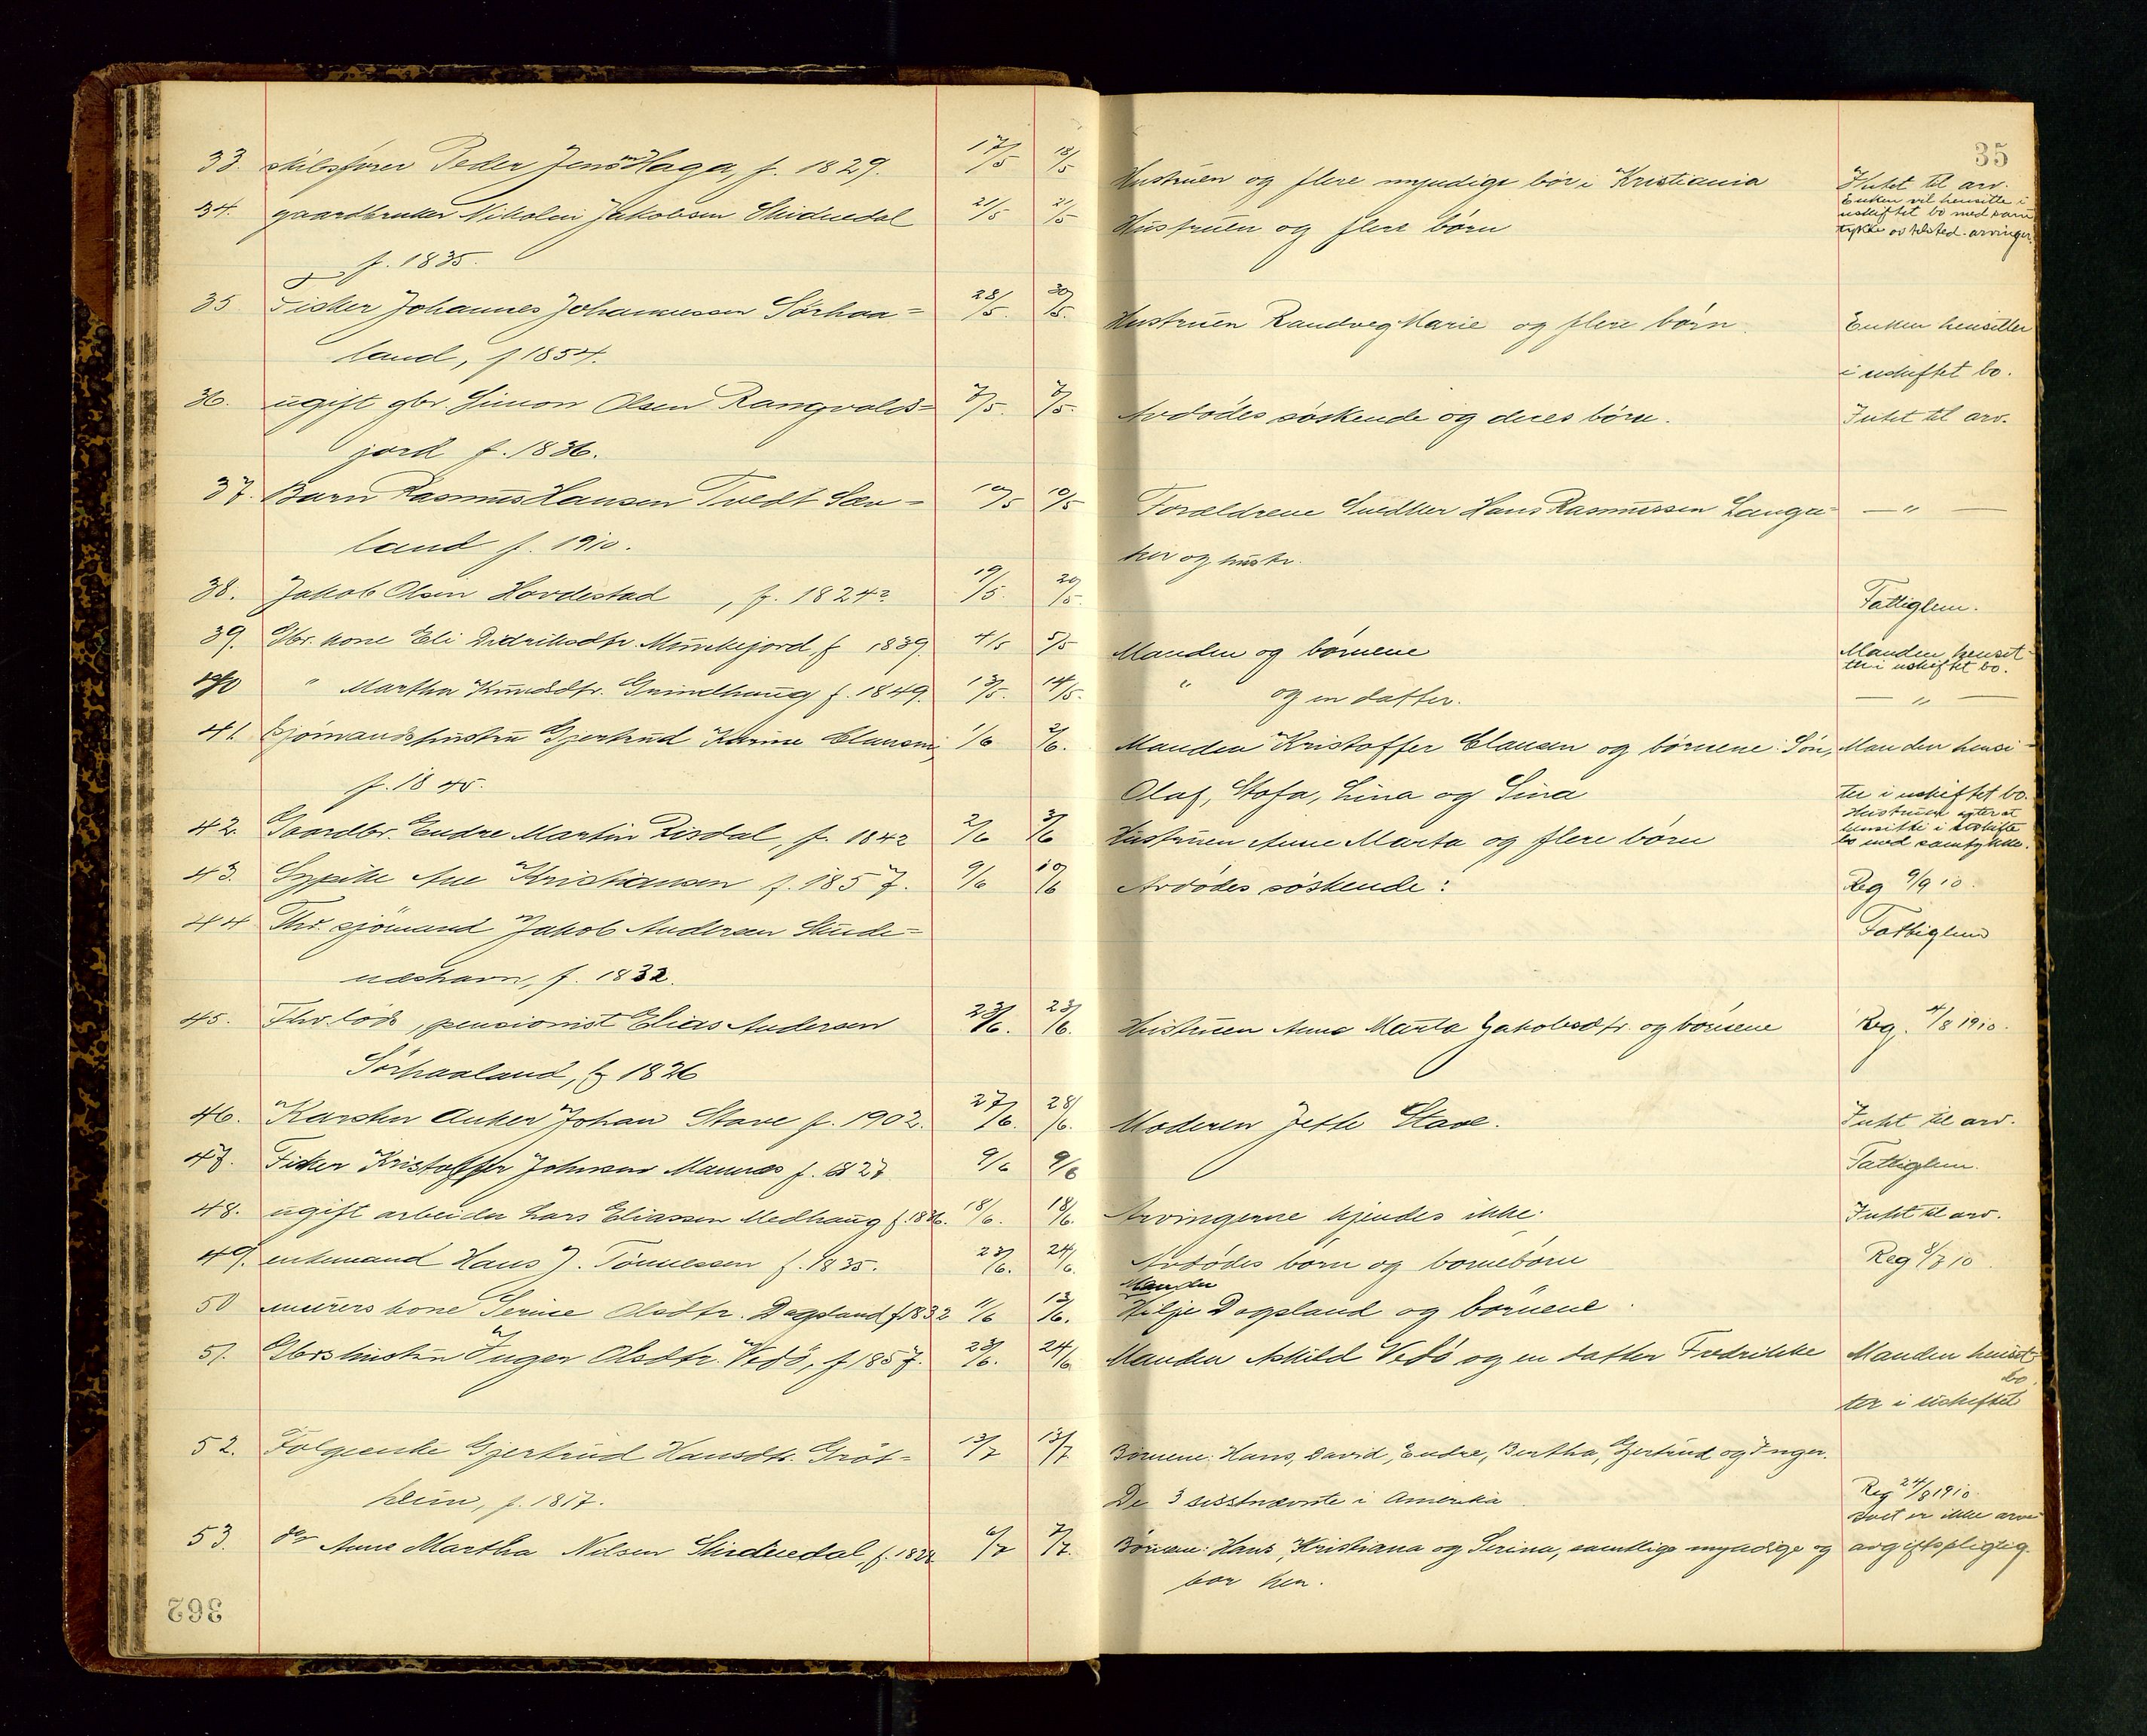 35
33. skibsfører Peder Jens Haga, f. 1829. 17/5 18/5 Hustruen og flere myndige bør i Kristiania Intet til arv.
34. gaardbruker Nikolai Jakobsen Skidnedal 21/5 21/5 Hustruen og flere børn Enken vil hensitte i
uskiftet bo med sam
tykke av arvinger.
f. 1835.
35 Fisker Johannes Johannessen Sørhaa= 28/5. 30/5. Hustruen Randveg Marie og flere børn. Enken hensitter
land, f 1854. i uskiftet bo.
36. ugift gbr. Simon Olsen Rangvalds= 7/5. 7/5. Avdødes søskende og deres børn. Intet til arv.
jord f. 1836.
37. Barn Rasmus Hansen Tvedt Sæv= 10/5 10/5 Forældrene Snedker Hans Rasmussen Langa= — " —
land f. 1910. her og hustr.
38. Jakob Olsen Hovdestad , f. 1824? 19/5. 20/5. Fattiglem.
39. Gbr. kone Eli Didriksdtr. Munkejord, f 1839. 4/5 5/5 Manden og børnene Manden hensit-
ter i uskiftet bo.
40 " Martha Knudsdtr. Grindhaug f. 1849. 13/5. 14/5. " og en datter. — " —
41. Sjømandshustru Gjertrud Karine Clausen, 1/6 2/6. Manden Kristoffer Clausen og børnene: Søn, Manden hensi-
f. 1845. Olaf, Stofa, Lina og Sina ter i uskiftet bo.
42. Gaardbr. Endre Martin Risdal, f. 1842 2/6 3/6 Hustruen Anne Marta og flere børn Hustruen agter at
hensitte i uskifte
bo med samtykke.
43. Sypike Ane Kristiansen f. 1857. 9/6 10/6 Avdødes søskende: Reg 9/9 10.
44 Fhv. sjømand Jakob Andersen Skude= Fattiglem
neshavn, f. 1832.
45. Fhv. lods, pensionist Elias Andersen 23/6. 23/6. Hustruen Anna Marta Jakobsdtr. og børnene Reg. 4/8 1910.
Sørhaaland, f 1826
46. Karsten Anker Johan Stave f. 1902. 27/6. 28/6. Moderen Jette Stave. Intet til arv.
47. Fisker Kristoffer Johnsen Mannes f. 1827 9/6 9/6 Fattiglem.
48. ugift arbeider Lars Eliassen Medhaug f. 1836. 18/6. 18/6. Arvingerne kjendes ikke. Intet til arv.
49. enkemand Hans J. Tønnessen f. 1835. 23/6. 24/6. Avdødes børn og børnebørn Reg 8/7 10
50 murers kone Serine Olsdtr. Dagsland f 1832 11/6 13/6. Manden
Hilje Dagsland og børnene.
51. Gbrs hustru Inger Olsdtr. Vedø, f 1857. 23/6. 24/6 Manden Askild Vedø og en datter Fredrikke Manden hensit-
ter i uskiftet bo.
52. Følgeenke Gjertrud Hansdtr. Grøt= 13/7 13/7 Børnene: Hans, David, Endre, Bertha, Gjertrud og Inger.
heim, f. 1817. De 3 sisstnævnte i Amerika Reg 24/8 1910.
53. do Anne Martha Nilsen Skidnedal, f. 1822 6/7 7/7. Børnene: Hans, Kristiana og Serina, samtlige myndige og boet er ikke arve-
avgiftspligtig
bor her.
362